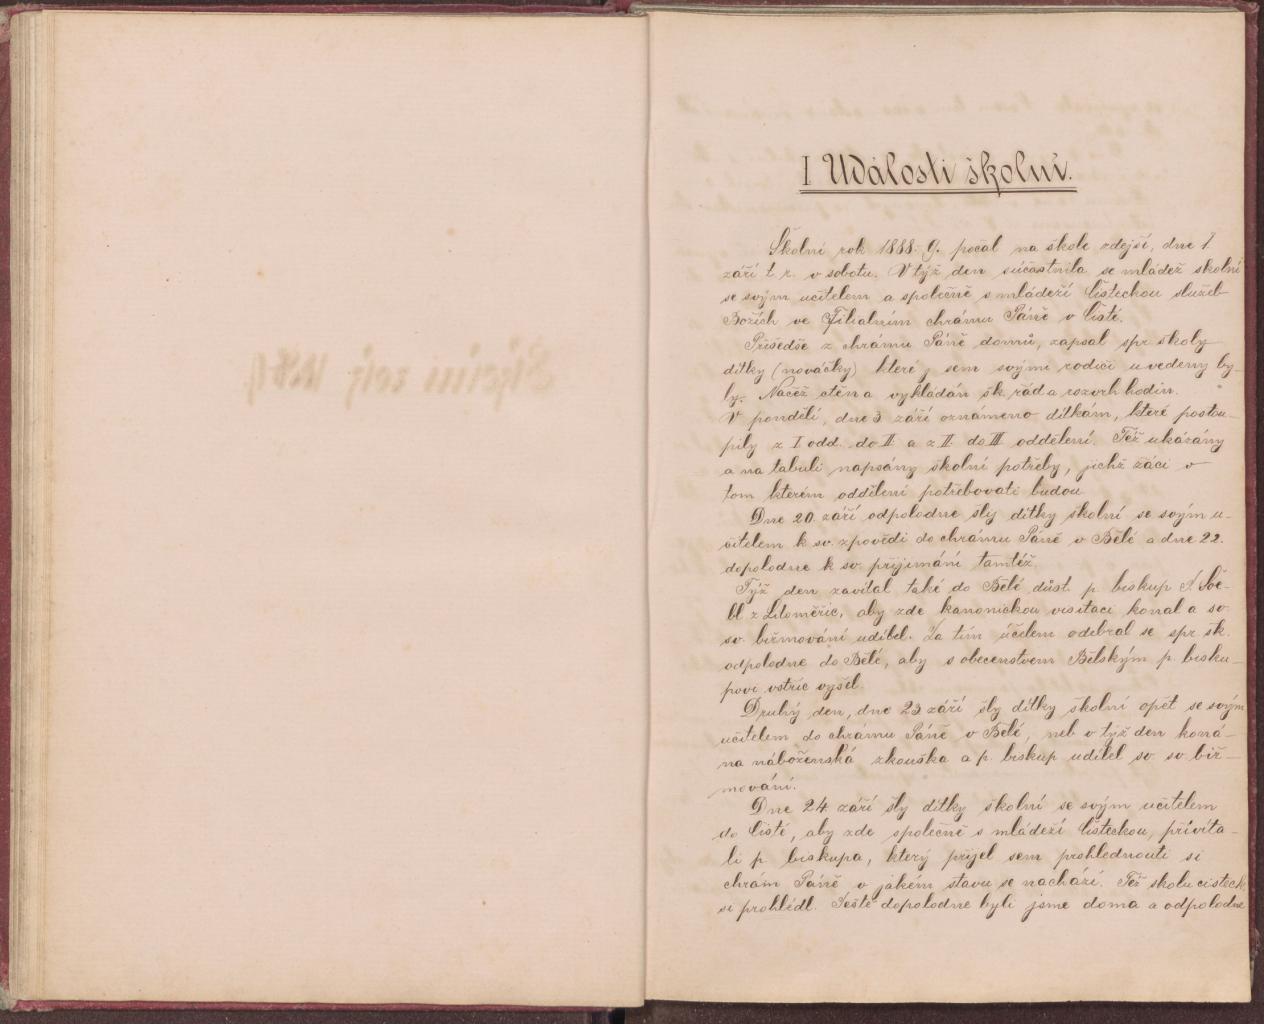 I Události školní.
Školní rok 1888-9. počal na škole zdejší, dne 1.
září t. r. v sobotu. V týž den súčastnila se mládež školní
se svým učitelem a společně s mládeží Čisteckou služeb
Božích ve Filialním chrámu Páně v Čisté.
Přišedše z chrámu Páně domů, zapsal spr. školy
dítky (nováčky) které sem svými rodiči uvedeny by-
ly. Načež čtěn a vykládán šk. řád a rozvrh hodin.
V pondělí, dne 3 září oznámeno dítkám, které postou-
pily z I. odd. do II a z II. do III oddělení. Též ukázány
a na tabuli napsány školní potřeby, jichž žáci v
tom kterém oddělení potřebovati budou
Dne 20. září odpoledne šly dítky školní se svým u-
čitelem k sv. zpovědi do chrámu Páně v Bělé a dne 22.
dopoledne k sv. přijímání tamtéž.
Týž den zavítal také do Bělé důst. p. biskup
z Litoměřic, aby zde kanonickou visitaci konal a sv.
sv. biřmování udílel. Za tím účelem odebral se spr. šk.
odpoledne do Bělé, aby s obecenstvem Bělským p. bisku-
povi vstříc vyšel.
Druhý den, dne 23 září šly dítky školní opět se svým
učitelem do chrámu Páně v Bělé, neb v týž den koná-
na náboženská zkouška a p. biskup udílel sv. sv. biř-
mování.
Dne 24. září šly dítky školní se svým učitelem
do Čisté, aby zde společně s mládeží Čisteckou, přivíta-
li p. biskupa, který přijel sem prohlednouti si
chrám Páně v jakém stavu se nachází. Též školu čisteck
si prohlédl. Ještě dopoledne byli jsme doma a odpoledne